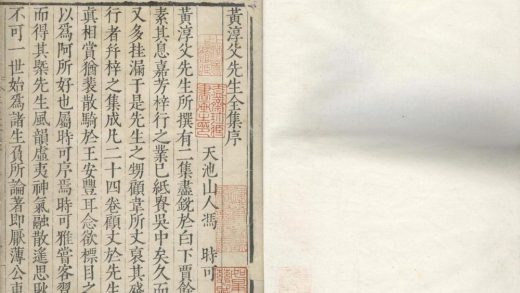 黃淳父先生全集序
天池山人馮 時可
黃淳父先生所撰有二集盡銳於白下賈餘
素其息嘉芳梓行之業已紙貴吳中矣久而
又多挂漏于是先生之甥顧韋所丈裒其殘
行者幷梓之集成凡二十四卷顧丈於先生
真相賞猶裴散騎於王安豐耳念欲標目之
以爲阿所好也屬時可序焉時可雅嘗客習
而得其槩先生風韻虛夷神氣融散遙思耿
不可一世始爲諸生負所論著即厭薄公車